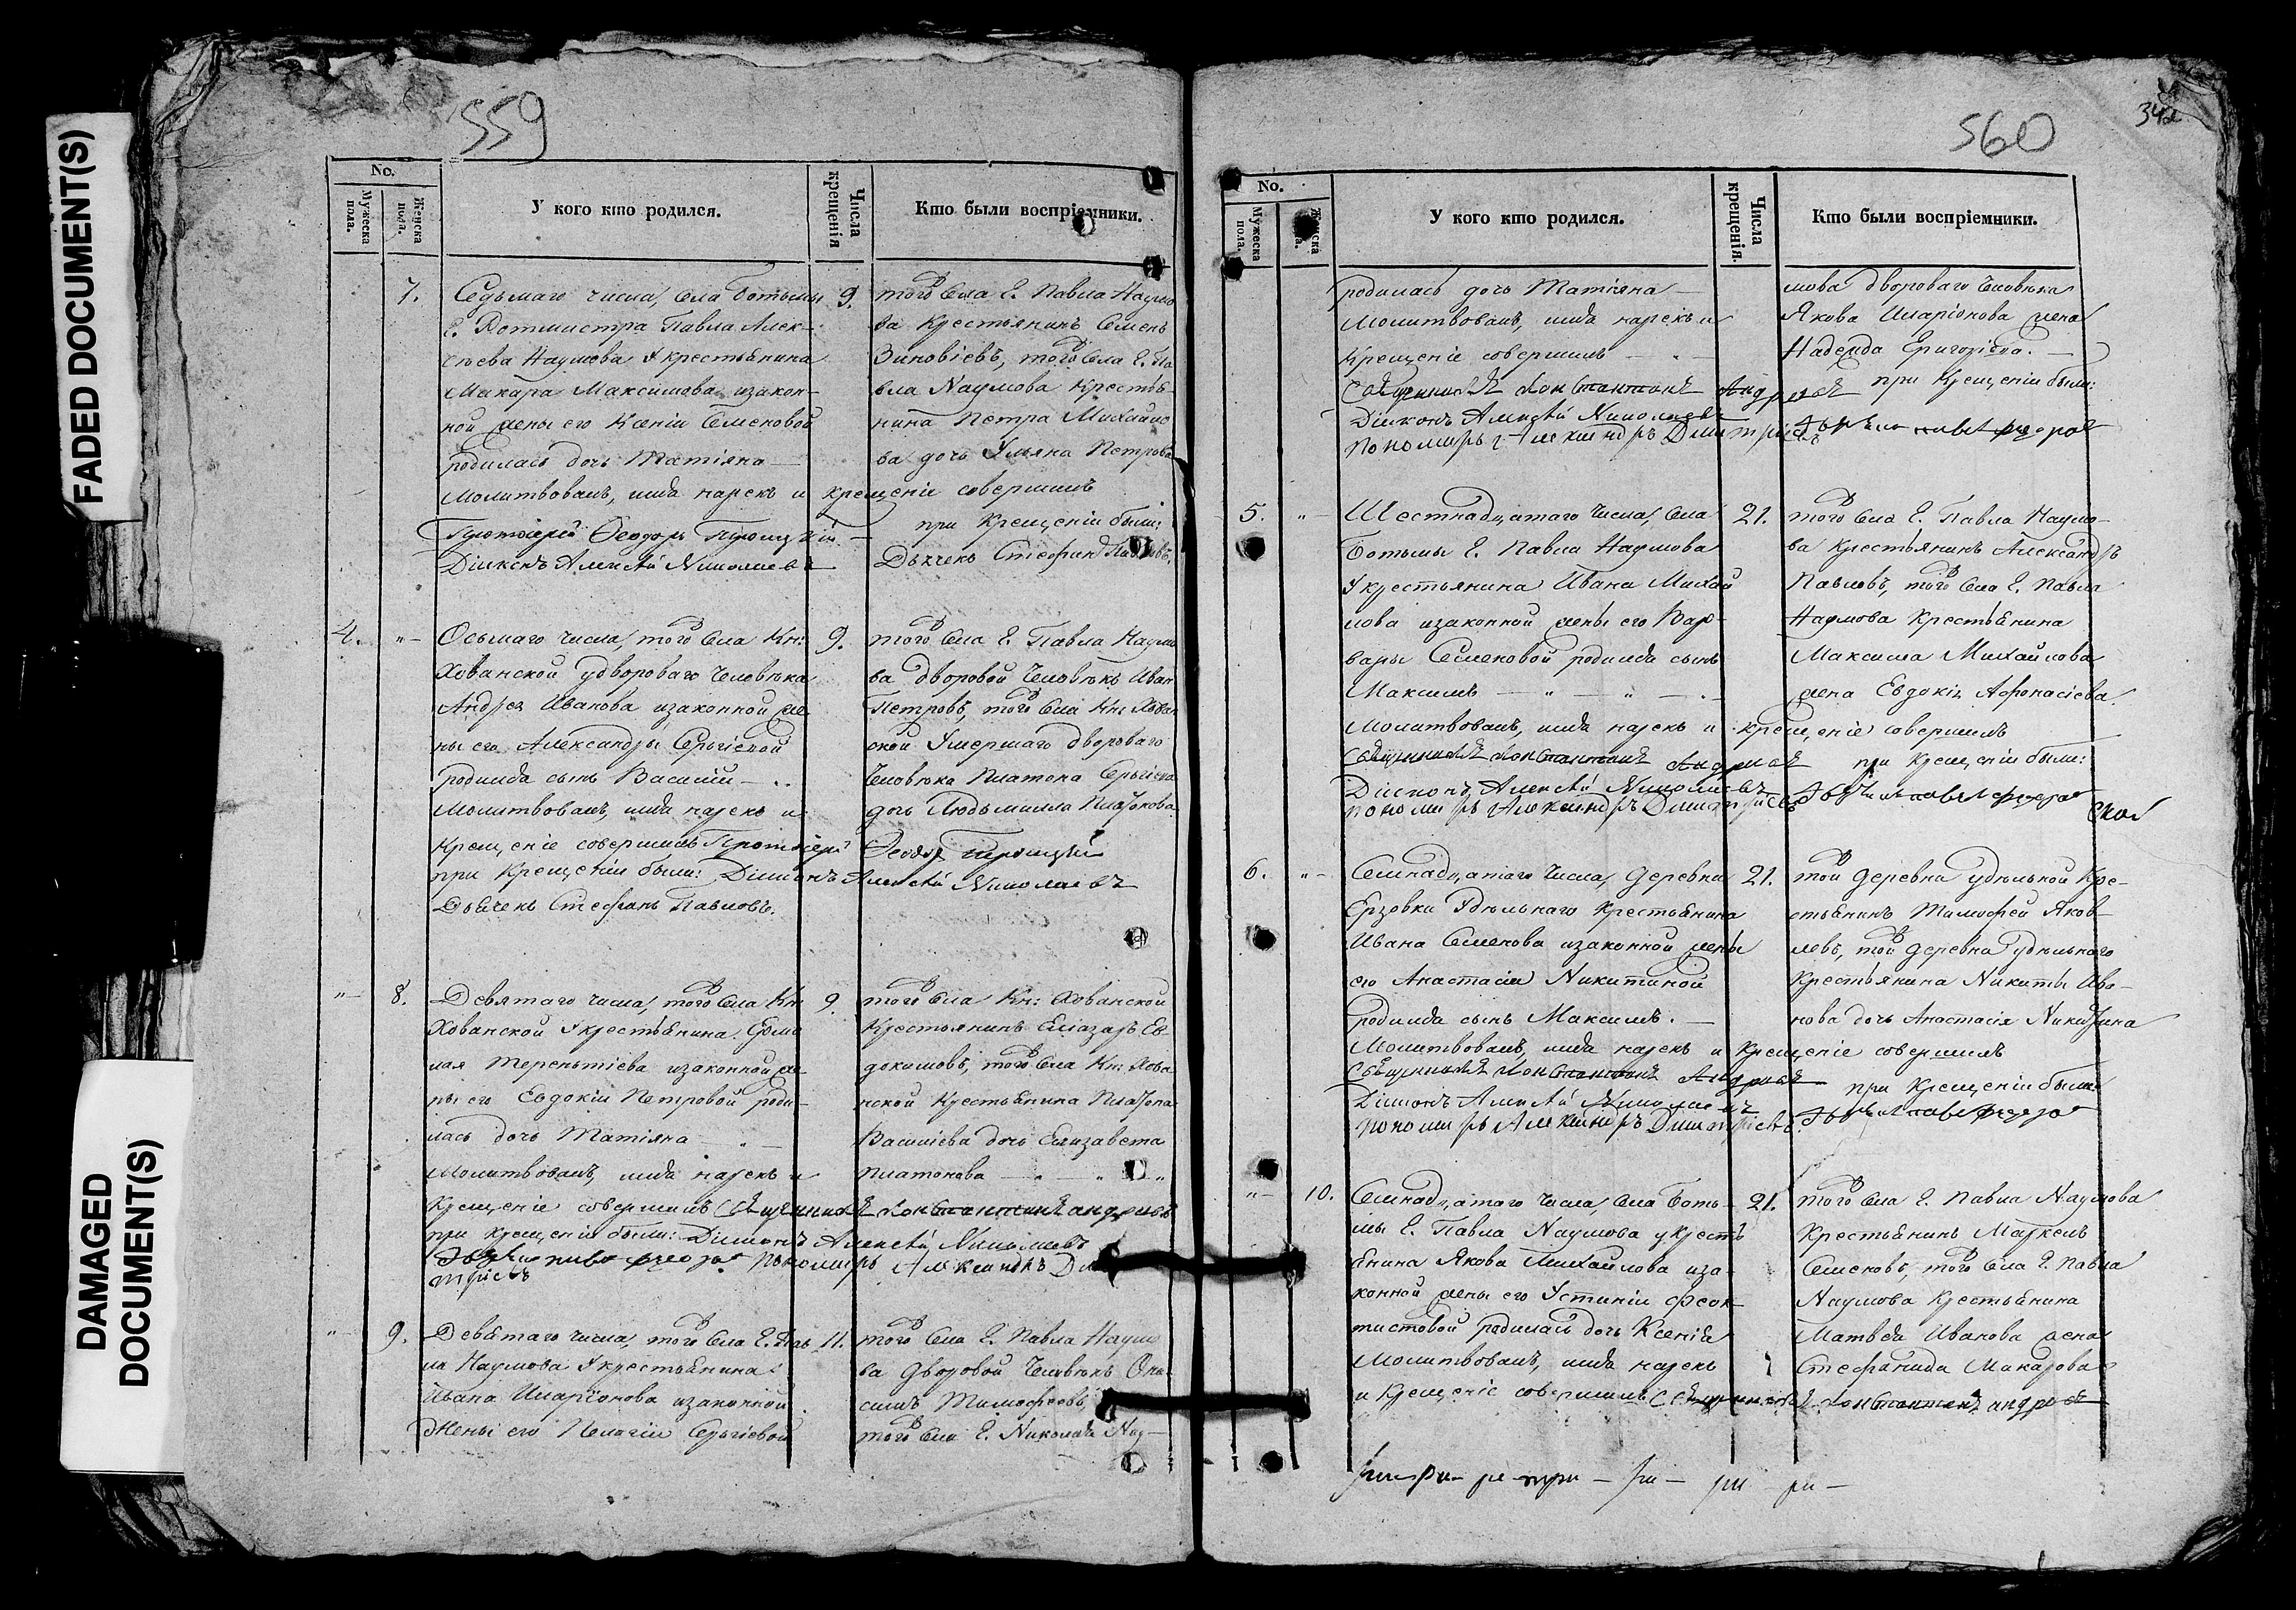 FADED DOCUMENT(S)
DAMAGED
DOCUMENT(S)
559
No.
Мужеска пола.
Женска пола.
У кого кто родился.
Числа крещенія
Кто были воспріемники.
7.
Седьмаго числа, села Ботьмы
Г. Ротмистра Павла Алек-
сѣева Наумова у крестьянина
Макара Максимова изакон-
ной жены его Ксеніи Семеновой
родилась дочь Татіяна
Молитвовалъ, имя нарекъ и крещеніе совершилъ
Протоіерей Ѳеодоръ Троицкій
Діаконъ Алексѣй Николаевъ
9.
того села Г. Павла Наумо
ва крестьянинъ Семенъ
Зиновіевъ, того села Г. Па
вла Наумова крестья
нина Петра Михайло
ва дочь Ульяна Петрова
при крещеніи были:
Дьячекъ Стефанъ Павловъ.
4. "
Осьмаго числа, того села Кн:
Хованской у двороваго человѣка
Андрея Иванова изаконной же
ны его Александры Сергіевой
родился сынъ Василій
Молитвовалъ, имя нарекъ и
крещеніе совершилъ Протоіерей Ѳеодоръ Троицкій
при крещеніи были: Діаконъ Алексѣй Николаевъ
Дьячекъ Стефанъ Павловъ.
9.
того села Г. Павла Наумо
ва дворовой человѣкъ Иван
Петровъ, того села Кн: Хован
ской умершаго двороваго
человѣка Платона Сергіева
дочь Людьмилла Платонова
" 8.
Девятаго числа, того села Кн:
Хованской у крестьянина Ермо
лая Терентіева изаконной же
ны его Евдокіи Петровой роди-
лась дочь Татіяна
Молитвовалъ, имя нарекъ и
крещеніе совершилъ Священникъ Константинъ Андреевъ
при крещеніи были: Діаконъ Алексѣй Николаевъ
Пономарь Александръ Дми
тріевъ
9.
того села Кн: Хованской
крестьянинъ Еліазаръ Ев
докимовъ, того села Кн: Хова
нской крестьянина Платона
Василіева дочь Елизавета
Платонова
" 9.
Девятаго числа, того села Г. Пав
ла Наумова у крестьянина
Ивана Иларіонова изаконной
жены его Пелагіи Сергіевой
11.
того села Г. Павла Наумо
ва дворовой человѣкъ Они
симъ Тимофеевъ,
того села Г. Николая Нау-
560
342
No.
Мужеска пола.
У кого кто родился.
Числа крещенія.
Кто были воспріемники.
родилась дочь Татіяна
Молитвовалъ, имя нарекъ и
крещеніе совершилъ
Священникъ Константинъ Андреевъ
Діаконъ Алексѣй Николаевъ
Пономарь Александръ Дмитріевъ
мова двороваго человѣка
Якова Иларіонова жена
Надежда Григоріева.
при крещеніи были:
5. "
Шестнадцатаго числа, села
Ботьмы Г. Павла Наумова
у крестьянина Ивана Михай
лова изаконной жены его Вар-
вары Семеновой родился сынъ
Максимъ
Молитвовалъ, имя нарекъ и крещеніе совершилъ
Священникъ Константинъ Андреевъ
Діаконъ Алексѣй Николаевъ
Пономарь Александръ Дмитріевъ
21.
того села Г. Павла Наумо-
ва крестьянинъ Александръ
Павловъ, того села Г. Павла
Наумова крестьянина
Максима Михайлова
жена Евдокія Афонасіева.
при крещеніи были:
6. "
Семнадцатаго числа, деревни
Ерзовки удѣльнаго крестьянина
Ивана Семенова изаконной жены
его Анастасіи Никитиной
родился сынъ Максимъ.
Молитвовалъ, имя нарекъ и крещеніе совершилъ
Священникъ Константинъ Андреевъ
Діаконъ Алексѣй Николаевъ
Пономарь Александръ Дмитріевъ
21.
той деревни удѣльной кре-
стьянинъ Тимофей Яков-
левъ, той деревни удѣльнаго
крестьянина Никиты Ива-
нова дочь Анастасія Никитина
при крещеніи были
" 10.
Семнадцатаго числа, села Боть-
мы Г. Павла Наумова у кресть
янина Якова Михайлова иза-
конной жены его Устиніи Феок-
тистовой родилась дочь Ксенія
Молитвовалъ, имя нарекъ
и крещеніе совершилъ Священникъ Константинъ Андреевъ
21.
того села Г. Павла Наумова
крестьянинъ Маркелъ
Семеновъ, того села Г. Павла
Наумова крестьянина
Матвея Иванова жена
Стефанида Макарова